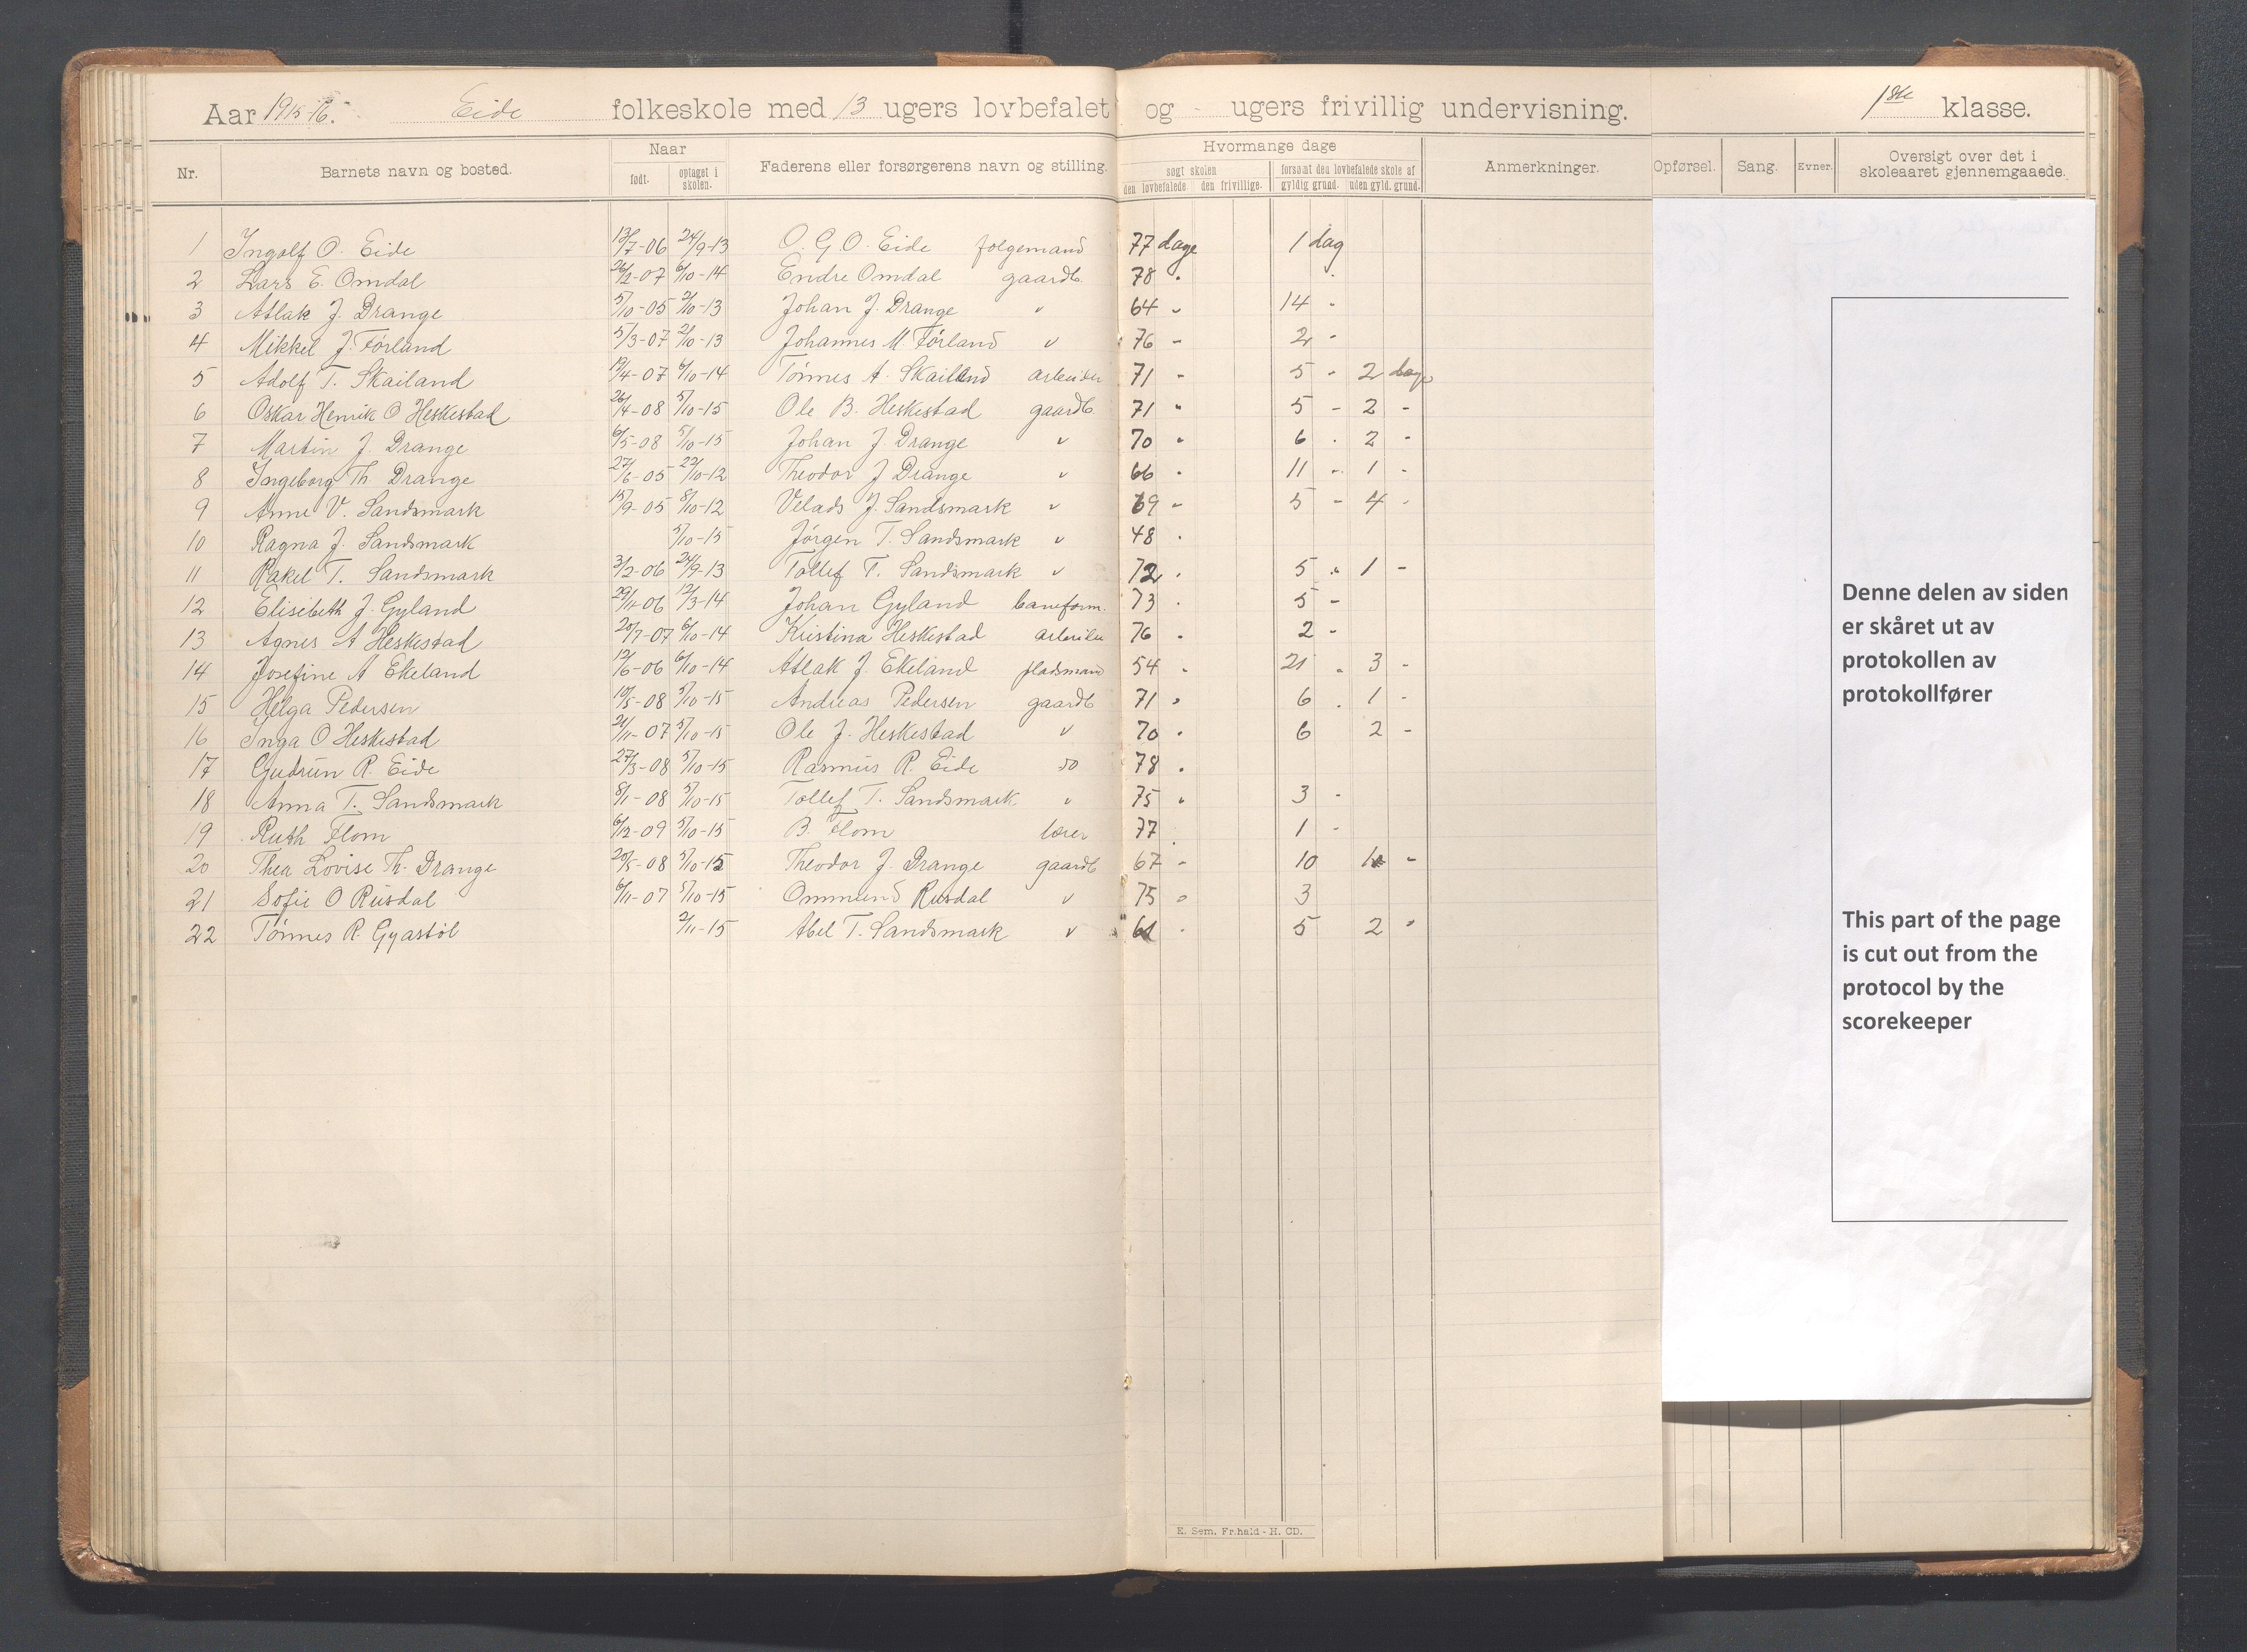 Aar 1915-16. Eide folkeskole med 13 ugers lovbefalet og - ugers frivillig undervisning. 1ste klasse.
Nr. Barnets navn og bosted. Naar født. optaget i skolen. Faderens eller forsørgerens navn og stilling. Hvormange dage søgt skolen den lovbefalede. den frivillige. forsømt den lovbefalede skole af gyldig grund. uden gyld. grund. Anmerkninger. Opførsel. Sang. Evner. Oversigt over det i skoleaaret gjennemgaaede.
1 Ingolf O. Eide 13/7-06 24/9-13 O. G. O. Eide folgemand 77 dage 1 dag
2 Lars E. Omdal 26/2-07 6/10-14 Endre Omdal gaardb. 78 "
3 Atlak J. Drange 5/10-05 2/10-13 Johan J. Drange " 64 " 14 "
4 Mikkel J. Førland 5/3-07 2/10-13 Johannes M. Førland " 76 - 2 -
5 Adolf T. Skailand 19/4-07 6/10-14 Tønnes A. Skailand arbeider 71 - 5 - 2 dage
6 Oskar Henrik O Heskestad 26/4-08 5/10-15 Ole B. Heskestad gaardb. 71 " 5 - 2 -
7 Martin J. Drange 6/5-08 5/10-15 Johan J Drange " 70 " 6 " 2 -
8 Ingeborg Th. Drange 27/6-05 22/10-12 Theodor J Drange " 66 " 11 - 1 -
9 Anne V. Sandsmark 15/9-05 8/10-12 Velads J. Sandsmark " 69 - 5 - 4 -
10 Ragna J. Sandsmark 5/10-15 Jørgen T. Sandsmark " 48 "
11 Rakel T. Sandsmark 3/2-06 24/9-13 Tollef T. Sandsmark " 72 " 5 " 1 -
12 Elisebeth J. Gyland 29/11-06 12/3-14 Johan Gyland baneform. 73 " 5 -
13 Agnes A Heskestad 20/7-07 6/10-14 Kristina Heskestad arbeider 76 " 2 -
14 Josefine A Ekeland 12/6-06 6/10-14 Atlak J. Ekeland pladsmand 54 " 21 " 3 -
15 Helga Pedersen 10/5-08 5/10-15 Andreas Pedersen gaardb 71 " 6 " 1 -
16 Inga O Heskestad 21/11-07 5/10-15 Ole J. Heskestad " 70 " 6 2 -
17 Gudrun R. Eide 27/3-08 5/10-15 Rasmus R. Eide do 78 "
18 Anna T. Sandsmark 8/1-08 5/10-15 Tollef T. Sandsmark " 75 " 3 -
19 Ruth Flom 6/12-09 5/10-15 B. Flom lærer 77 1 -
20 Thea Lovise Th. Drange 20/5-08 5/10-15 Theodor J. Drange gaardb 67 - 10 1 -
21 Sofie O Rusdal 6/11-07 5/10-15 Ommund Rusdal " 75 " 3
22 Tønnes R. Gyastøl 2/11-15 Abel T. Sandsmark " 61 " 5 2 "
Denne delen av siden
er skåret ut av
protokollen av
protokollfører
This part of the page
is cut out from the
protocol by the
scorekeeper
E. Sem. Fr.hald - H. CD.